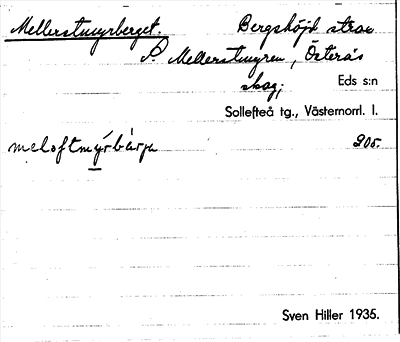 Mellerstmyrberget. Bergshöjd strax
S. Mellerstmyren, Österås
skog; Eds s:n
Sollefteå tg., Västernorrl. l.
meloftmyrbärje 205.
Sven Hiller 1935.